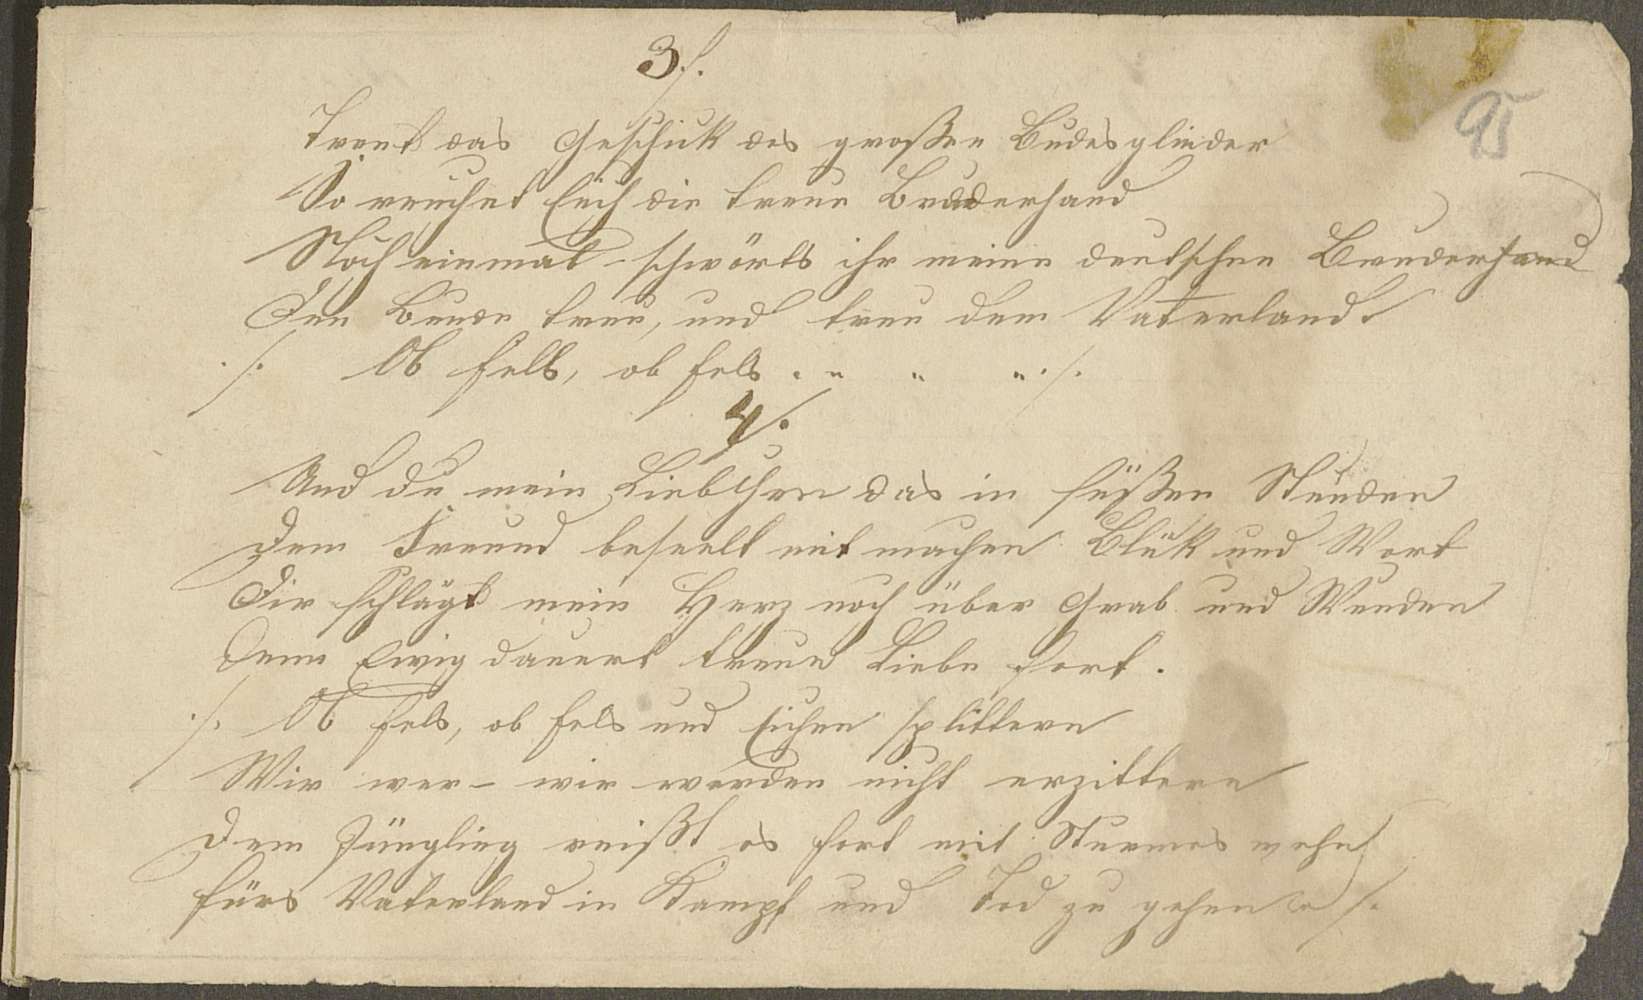 3./.
95
Trent das Geschick des großen Budes glieder
So reichet Euch die treue Bruderhand
Noch einmal schwörts ihr meine deutschen Bruderhand
Den Bunde treu, und treu dem Vaterland.
./. Ob Fels, ob Fels . " " " ./.
4/.
Und du mein Liebchen das in süßen Stunden
Dem Freund beseelt mit machen Blick und Wort
Dir schlägt mein Herz noch über Grab und Wunden
Denn Ewig dauert treue Liebe fort.
./. Ob Fels, ob Fels und Eichen splittern
Wir wer- wir werden nicht erzittern
Dem Jüngling reißt es fort mit Sturmes wehn
fürs Vaterland in Kampf und Tod zu gehen ./.